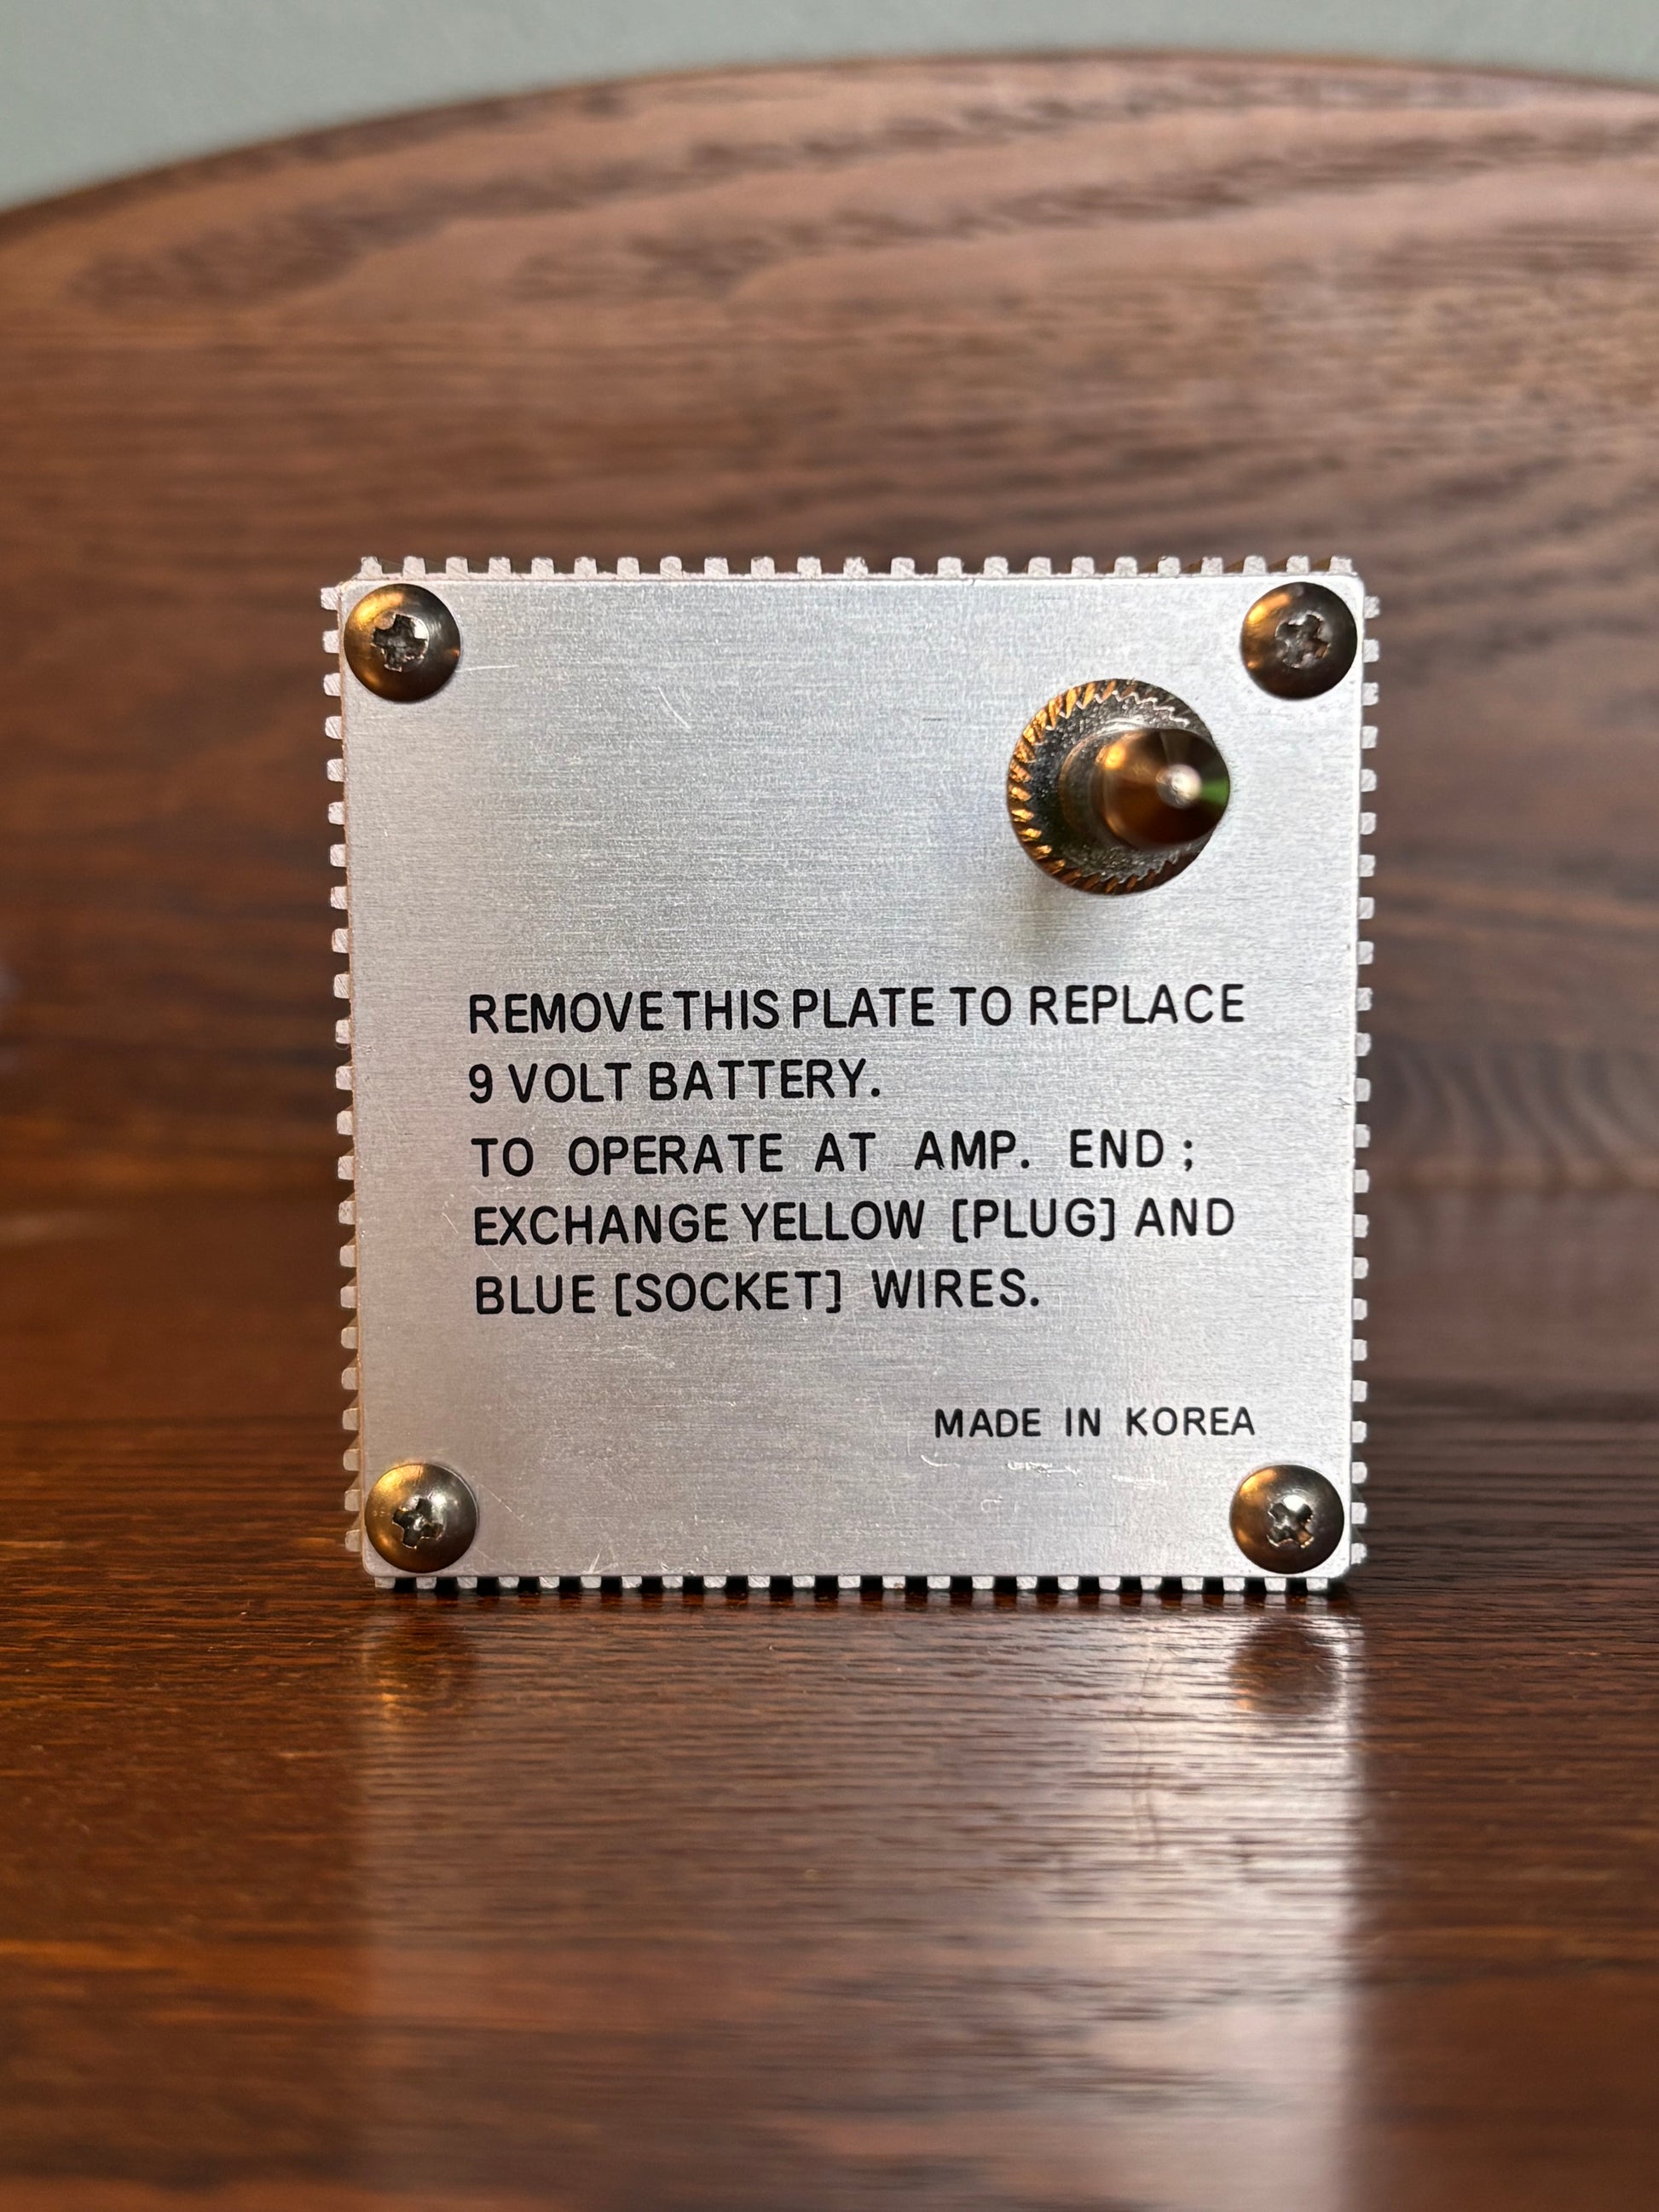 REMOVE THIS PLATE TO REPLACE
9 VOLT BATTERY.
TO OPERATE AT AMP. END ;
EXCHANGE YELLOW [PLUG] AND
BLUE [SOCKET] WIRES.
MADE IN KOREA